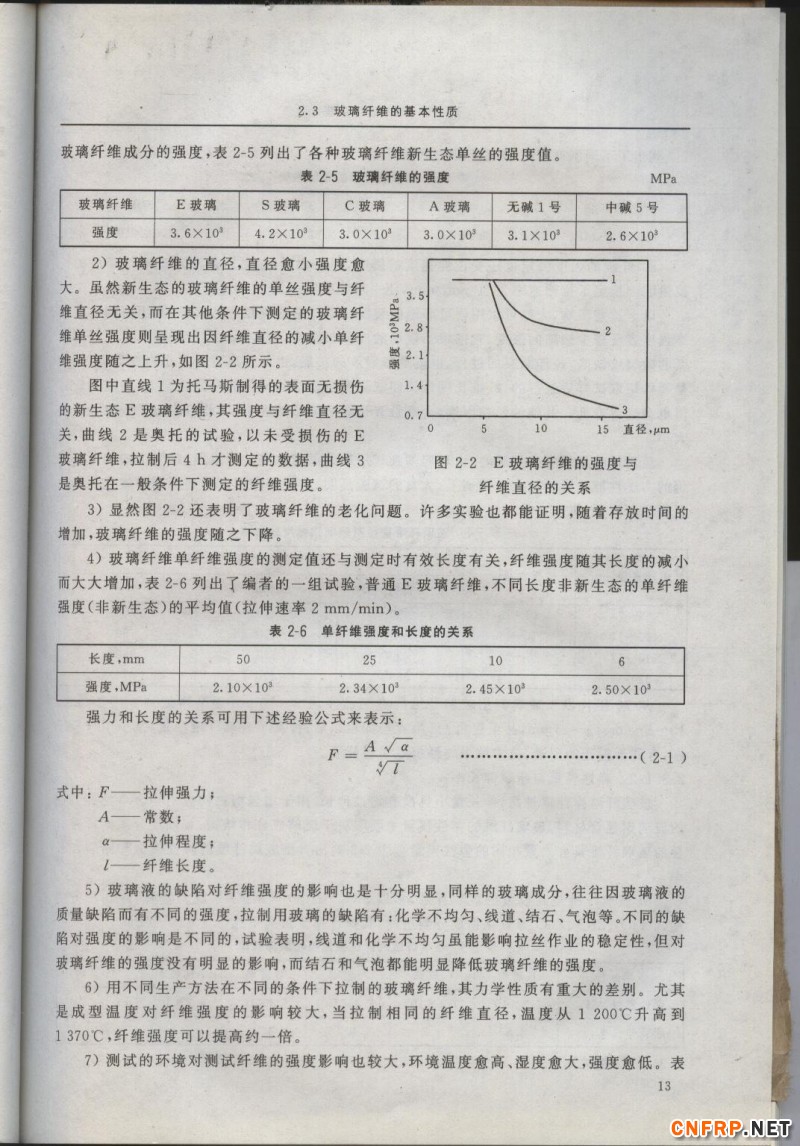 2.3 玻璃纤维的基本性质
玻璃纤维成分的强度,表 2-5 列出了各种玻璃纤维新生态单丝的强度值。
表 2-5 玻璃纤维的强度 MPa
玻璃纤维 E 玻璃 S 玻璃 C 玻璃 A 玻璃 无碱 1 号 中碱 5 号
强度 3.6×10³ 4.2×10³ 3.0×10³ 3.0×10³ 3.1×10³ 2.6×10³
2) 玻璃纤维的直径,直径愈小强度愈
大。虽然新生态的玻璃纤维的单丝强度与纤
维直径无关,而在其他条件下测定的玻璃纤
维单丝强度则呈现出因纤维直径的减小单纤
维强度随之上升,如图 2-2 所示。
图中直线 1 为托马斯制得的表面无损伤
的新生态 E 玻璃纤维,其强度与纤维直径无
关,曲线 2 是奥托的试验,以未受损伤的 E
玻璃纤维,拉制后 4 h 才测定的数据,曲线 3
是奥托在一般条件下测定的纤维强度。
强度,10³MPa
3.5
2.8
2.1
1.4
0.7
1
2
3
0 5 10 15 直径,μm
图 2-2 E 玻璃纤维的强度与
纤维直径的关系
3) 显然图 2-2 还表明了玻璃纤维的老化问题。许多实验也都能证明,随着存放时间的
增加,玻璃纤维的强度随之下降。
4) 玻璃纤维单纤维强度的测定值还与测定时有效长度有关,纤维强度随其长度的减小
而大大增加,表 2-6 列出了编者的一组试验,普通 E 玻璃纤维,不同长度非新生态的单纤维
强度(非新生态)的平均值(拉伸速率 2 mm/min)。
表 2-6 单纤维强度和长度的关系
长度,mm 50 25 10 6
强度,MPa 2.10×10³ 2.34×10³ 2.45×10³ 2.50×10³
强力和长度的关系可用下述经验公式来表示:
F = A √α / ∜l ……………………………( 2-1 )
式中:F——拉伸强力;
A——常数;
α——拉伸程度;
l——纤维长度。
5) 玻璃液的缺陷对纤维强度的影响也是十分明显,同样的玻璃成分,往往因玻璃液的
质量缺陷而有不同的强度,拉制用玻璃的缺陷有:化学不均匀、线道、结石、气泡等。不同的缺
陷对强度的影响是不同的,试验表明,线道和化学不均匀虽能影响拉丝作业的稳定性,但对
玻璃纤维的强度没有明显的影响,而结石和气泡都能明显降低玻璃纤维的强度。
6) 用不同生产方法在不同的条件下拉制的玻璃纤维,其力学性质有重大的差别。尤其
是成型温度对纤维强度的影响较大,当拉制相同的纤维直径,温度从 1 200℃升高到
1 370℃,纤维强度可以提高约一倍。
7) 测试的环境对测试纤维的强度影响也较大,环境温度愈高、湿度愈大,强度愈低。表
13
CNFRP.NET